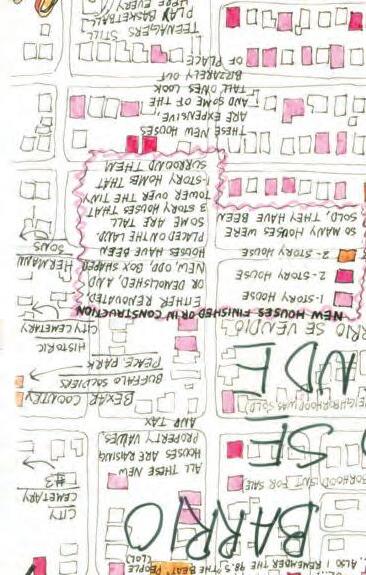 ALSO I REMEMBER THE 98.5 "THE BEAT" PEOPLE
(LOL)
BARRIO
CITY
CEMETARY
#3
ORHOOD ISN'T FOR SALE
SE
ALL THESE NEW
HOUSES ARE RAISING
PROPERTY VALUES
AND TAX
EIGHBORHOOD WAS SOLD
BEXAR COUNTEY
BUFFALO SOLDIERS
PEACE PARK
RIO SE VENDIO
HISTORIC
CITY CEMETARY
NEW HOUSES FINISHED OR IN CONSTRUCTION
1-STORY HOUSE
2-STORY HOUSE
2-STORY HOUSE
SO MANY HOUSES WERE
SOLD, THEY HAVE BEEN
EITHER RENOVATED,
OR DEMOLISHED, AND
NEW, ODD, BOX SHAPED
HOUSES HAVE BEEN
PLACED ON THE LAND.
SOME ARE TALL
3 STORY HOUSES THAT
TOWER OVER THE TINY
1-STORY HOMES THAT
SURROUND THEM
HERMANN
SONS
THESE NEW HOUSES
ARE EXPENSIVE,
AND SOME OF THE
TALL ONES LOOK
BIZARELY OUT
OF PLACE
TEENAGERS STILL
PLAY BASKETBALL
HERE EVERY